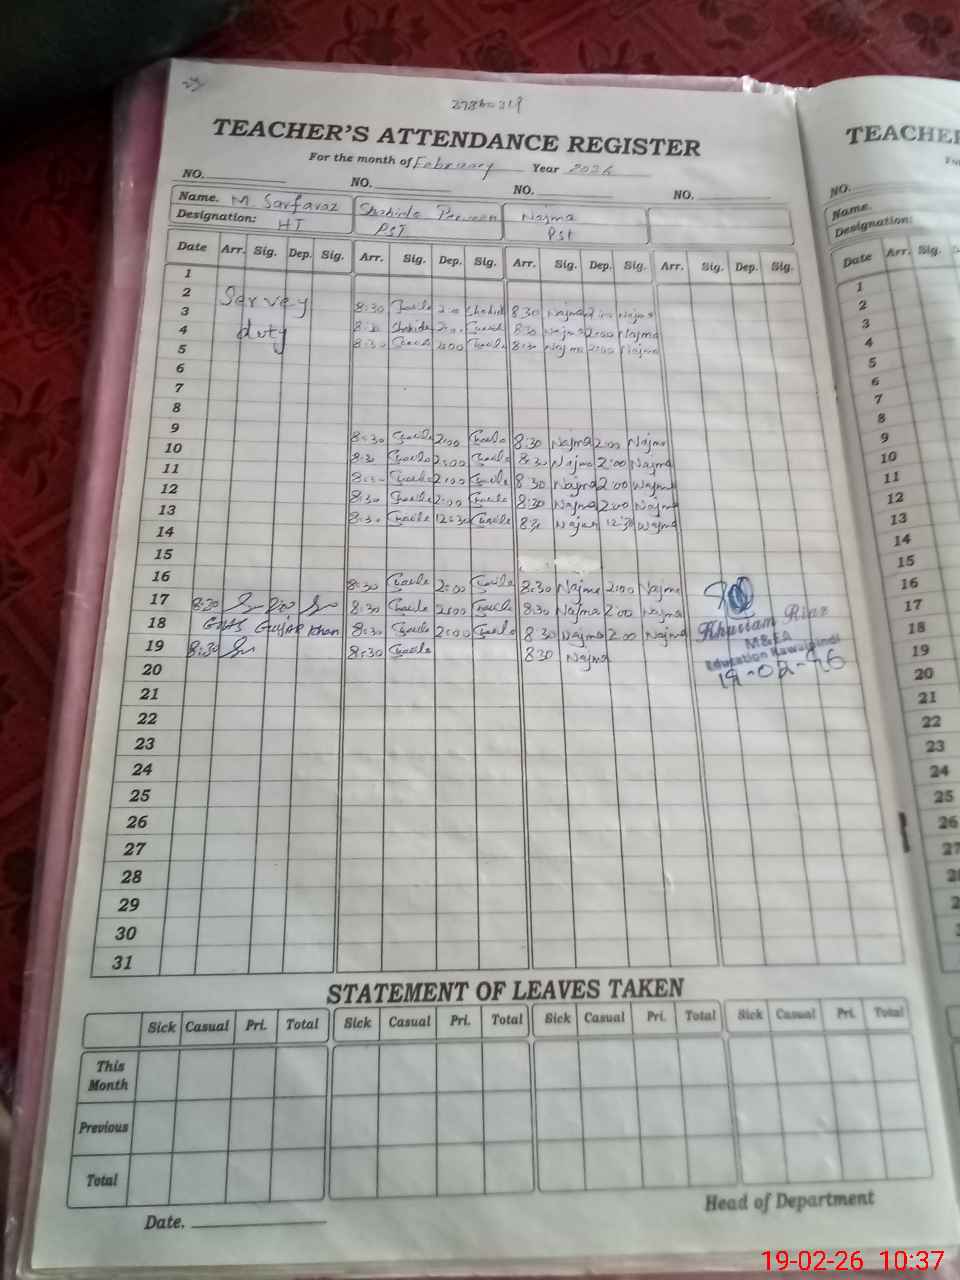 TEACHER'S ATTENDANCE REGISTER
For the month of February Year 2026
NO. NO. NO. NO.
Name. M. Sarfaraz Shahida Perveen Najma
Designation: HT PST Pst
Date Arr. Sig. Dep. Sig. Arr. Sig. Dep. Sig. Arr. Sig. Dep. Sig. Arr. Sig. Dep. Sig.
1
2 Servey
3 8:30 2:00 Shahida 8:30 Najma 2:00 Najma
4 duty 8:30 Shahida 2:00 8:30 Najma 2:00 Najma
5 8:30 2:00 8:30 Najma 2:00 Najma
6
7
8
9 8:30 2:00 8:30 Najma 2:00 Najma
10 8:30 2:00 8:30 Najma 2:00 Najma
11 8:30 2:00 8:30 Najma 2:00 Najma
12 8:30 2:00 8:30 Najma 2:00 Najma
13 8:30 12:30 8:30 Najma 12:30 Najma
14
15
16 8:30 2:00 8:30 Najma 2:00 Najma
17 8:30 8:30 2:00 8:30 Najma 2:00 Najma
18 Gujar Khan 8:30 2:00 8 30 Najma 2:00 Najma
19 8:30 8:30 8 30 Najma
20
21
22
23
24
25
26
27
28
29
30
31
Khurram Riaz
M&EA
Education Rawalpindi
19-02-26
STATEMENT OF LEAVES TAKEN
Sick Casual Pri. Total Sick Casual Pri. Total Sick Casual Pri. Total Sick Casual Pri. Total
This Month
Previous
Total
Date.
Head of Department
TEACHE
NO.
Name.
Designation:
Date Arr. Sig.
1
2
3
4
5
6
7
8
9
10
11
12
13
14
15
16
17
18
19
20
21
22
23
24
25
26
27
19-02-26 10:37